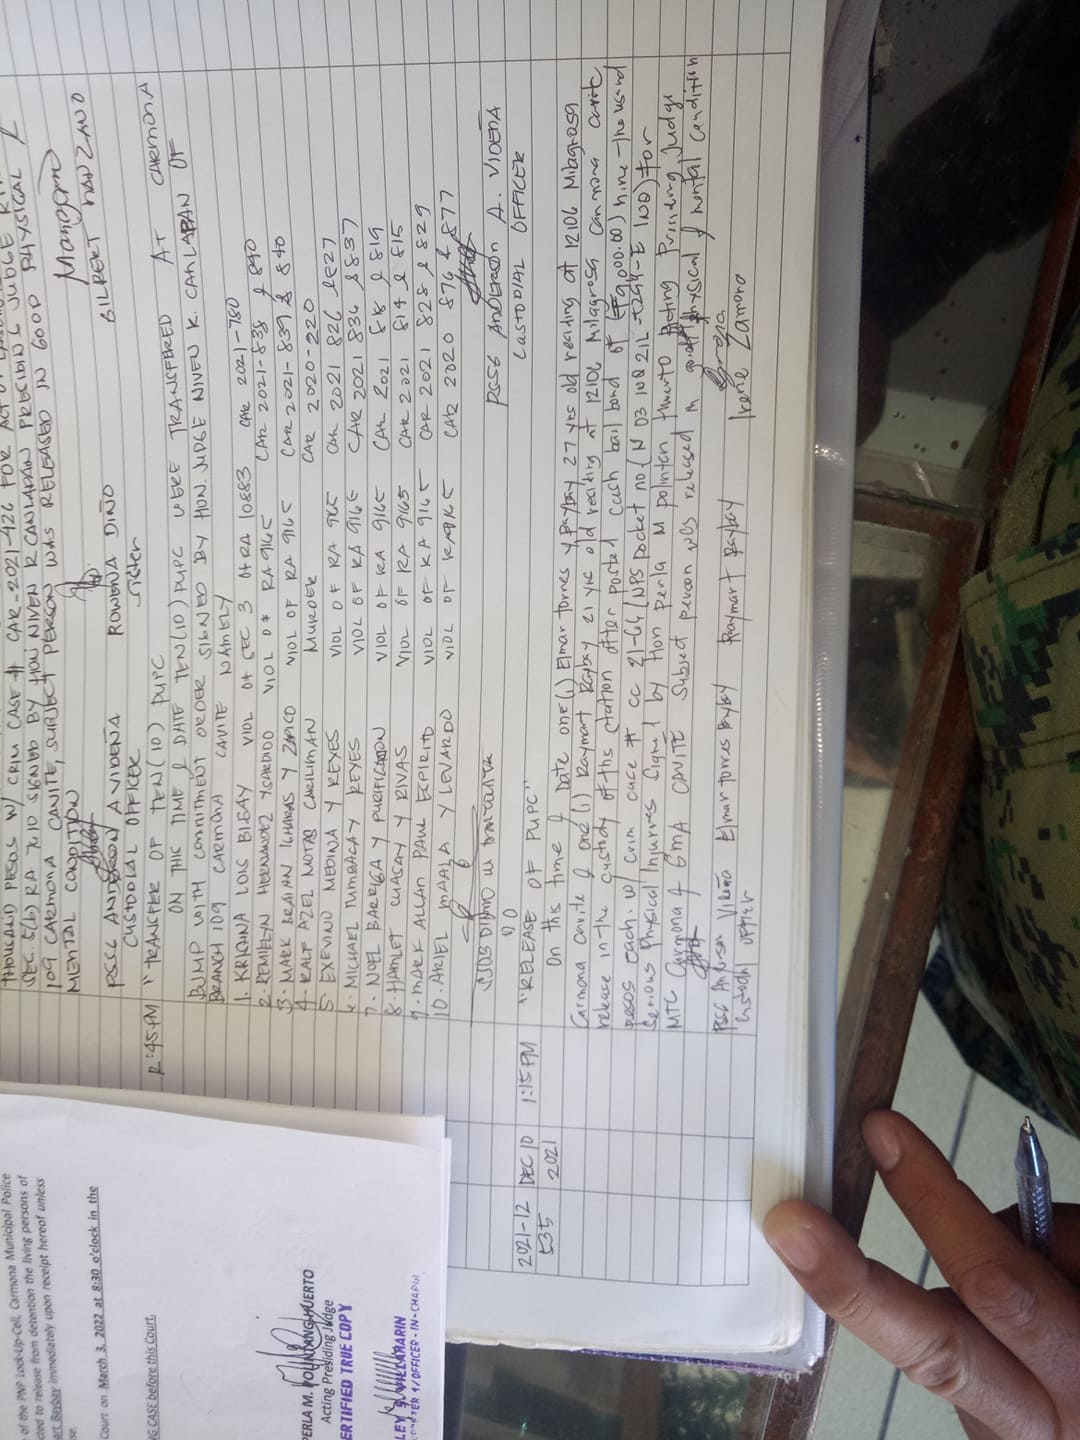 of the PNP Lock-Up-Cell, Carmona Municipal Police
cted to release from detention the living persons of
art Baybay immediately upon receipt hereof unless
se.
Court on March 3, 2022 at 8:30 o'clock in the
NG CASE before this Court.
PERLA M. POLINTANG-HUERTO
Acting Presiding Judge
ERTIFIED TRUE COPY
LEY S. VILLARARIN
/OFFICER-IN-CHARGE
THOUSAND PESOS W/ CRIM CASE #. CAR-2021-426 FOR ACT OF
SEC. 5(b) RA 7610 SIGNED BY HON NIVEN R CANLAPAN PRESIDING JUDGE
109 CARMONA CAVITE, SUBJECT PERSON WAS RELEASED IN GOOD PHYSICAL &
MENTAL CONDITION
PSSG ANDERSON A VIDEÑA ROWENA DIÑO GILBERT MANZANO
CUSTODIAL OFFICER Sister
12:45PM "TRANSFER OF TEN(10) PUPC
ON THIS TIME & DATE TEN(10) PUPC WERE TRANSFERED AT CARMONA
BJMP WITH COMMITMENT ORDER SIGNED BY HON. JUDGE NIVEN R. CANLAPAN OF
BRANCH 109 CARMONA CAVITE NAMELY
1. KRISHNA LOIS BIGAY VIOL OF SEC 3 OF RA 10883 CAR 2021-780
2. REMIELYN HERNANDEZ Y SARDIDO VIOL OF RA 9165 CAR 2021-838 & 840
3. MARK BRAIAN ICHARAS Y ZAPICO VIOL OF RA 9165 CAR 2021-839 & 840
4. RALF AZEL MOTAS CARILIMAN MURDER CAR 2020-220
5. EXEVINO MEDINA Y REYES VIOL OF RA 965 CAR 2021 826 & 827
6. MICHAEL TUMBAGA Y REYES VIOL OF RA 9165 CAR 2021 836 & 837
7. NOEL BARRIGA Y PURIFICATION VIOL OF RA 9165 CAR 2021 818 & 819
8. HAMLET CUASAY Y RIVAS VIOL OF RA 9165 CAR 2021 814 & 815
9. MARK ALLAN PAUL ESPIRITO VIOL OF RA 9165 CAR 2021 828 & 829
10. ARIEL MAALA Y LEVARDO VIOL OF RA 9165 CAR 2020 876 & 877
PSSG ANDERSON A. VIDEÑA
CUSTODIAL OFFICER
2021-12 DEC 10 1:15PM "RELEASE OF PUPC"
535 2021 On this time & Date one(1) Elmar torres y Baybay 27 yrs old residing at 12106 Milagrosa
Carmona Cavite & one (1) Raymart Baybay 21 yrs old residing at 12106 Milagrosa Carmona Cavite
release in the custody of this station after posted cash bail bond of (₱9,000.00) nine-thousand
pesos each. w/ crim case # cc 21-64 (NPS Docket no. ( IV 03 INQ 21L -E INQ) for
Serious Physical Injuries Signed by Hon perla M polintan, Huerto Acting Presiding Judge
MTC Carmona & GMA CAVITE Subject person was released in good physical & mental condition
PSSG Anderson VIDEÑA Elmar torres Baybay Raymart Baybay Irene Zamora
Custodial OFFICER